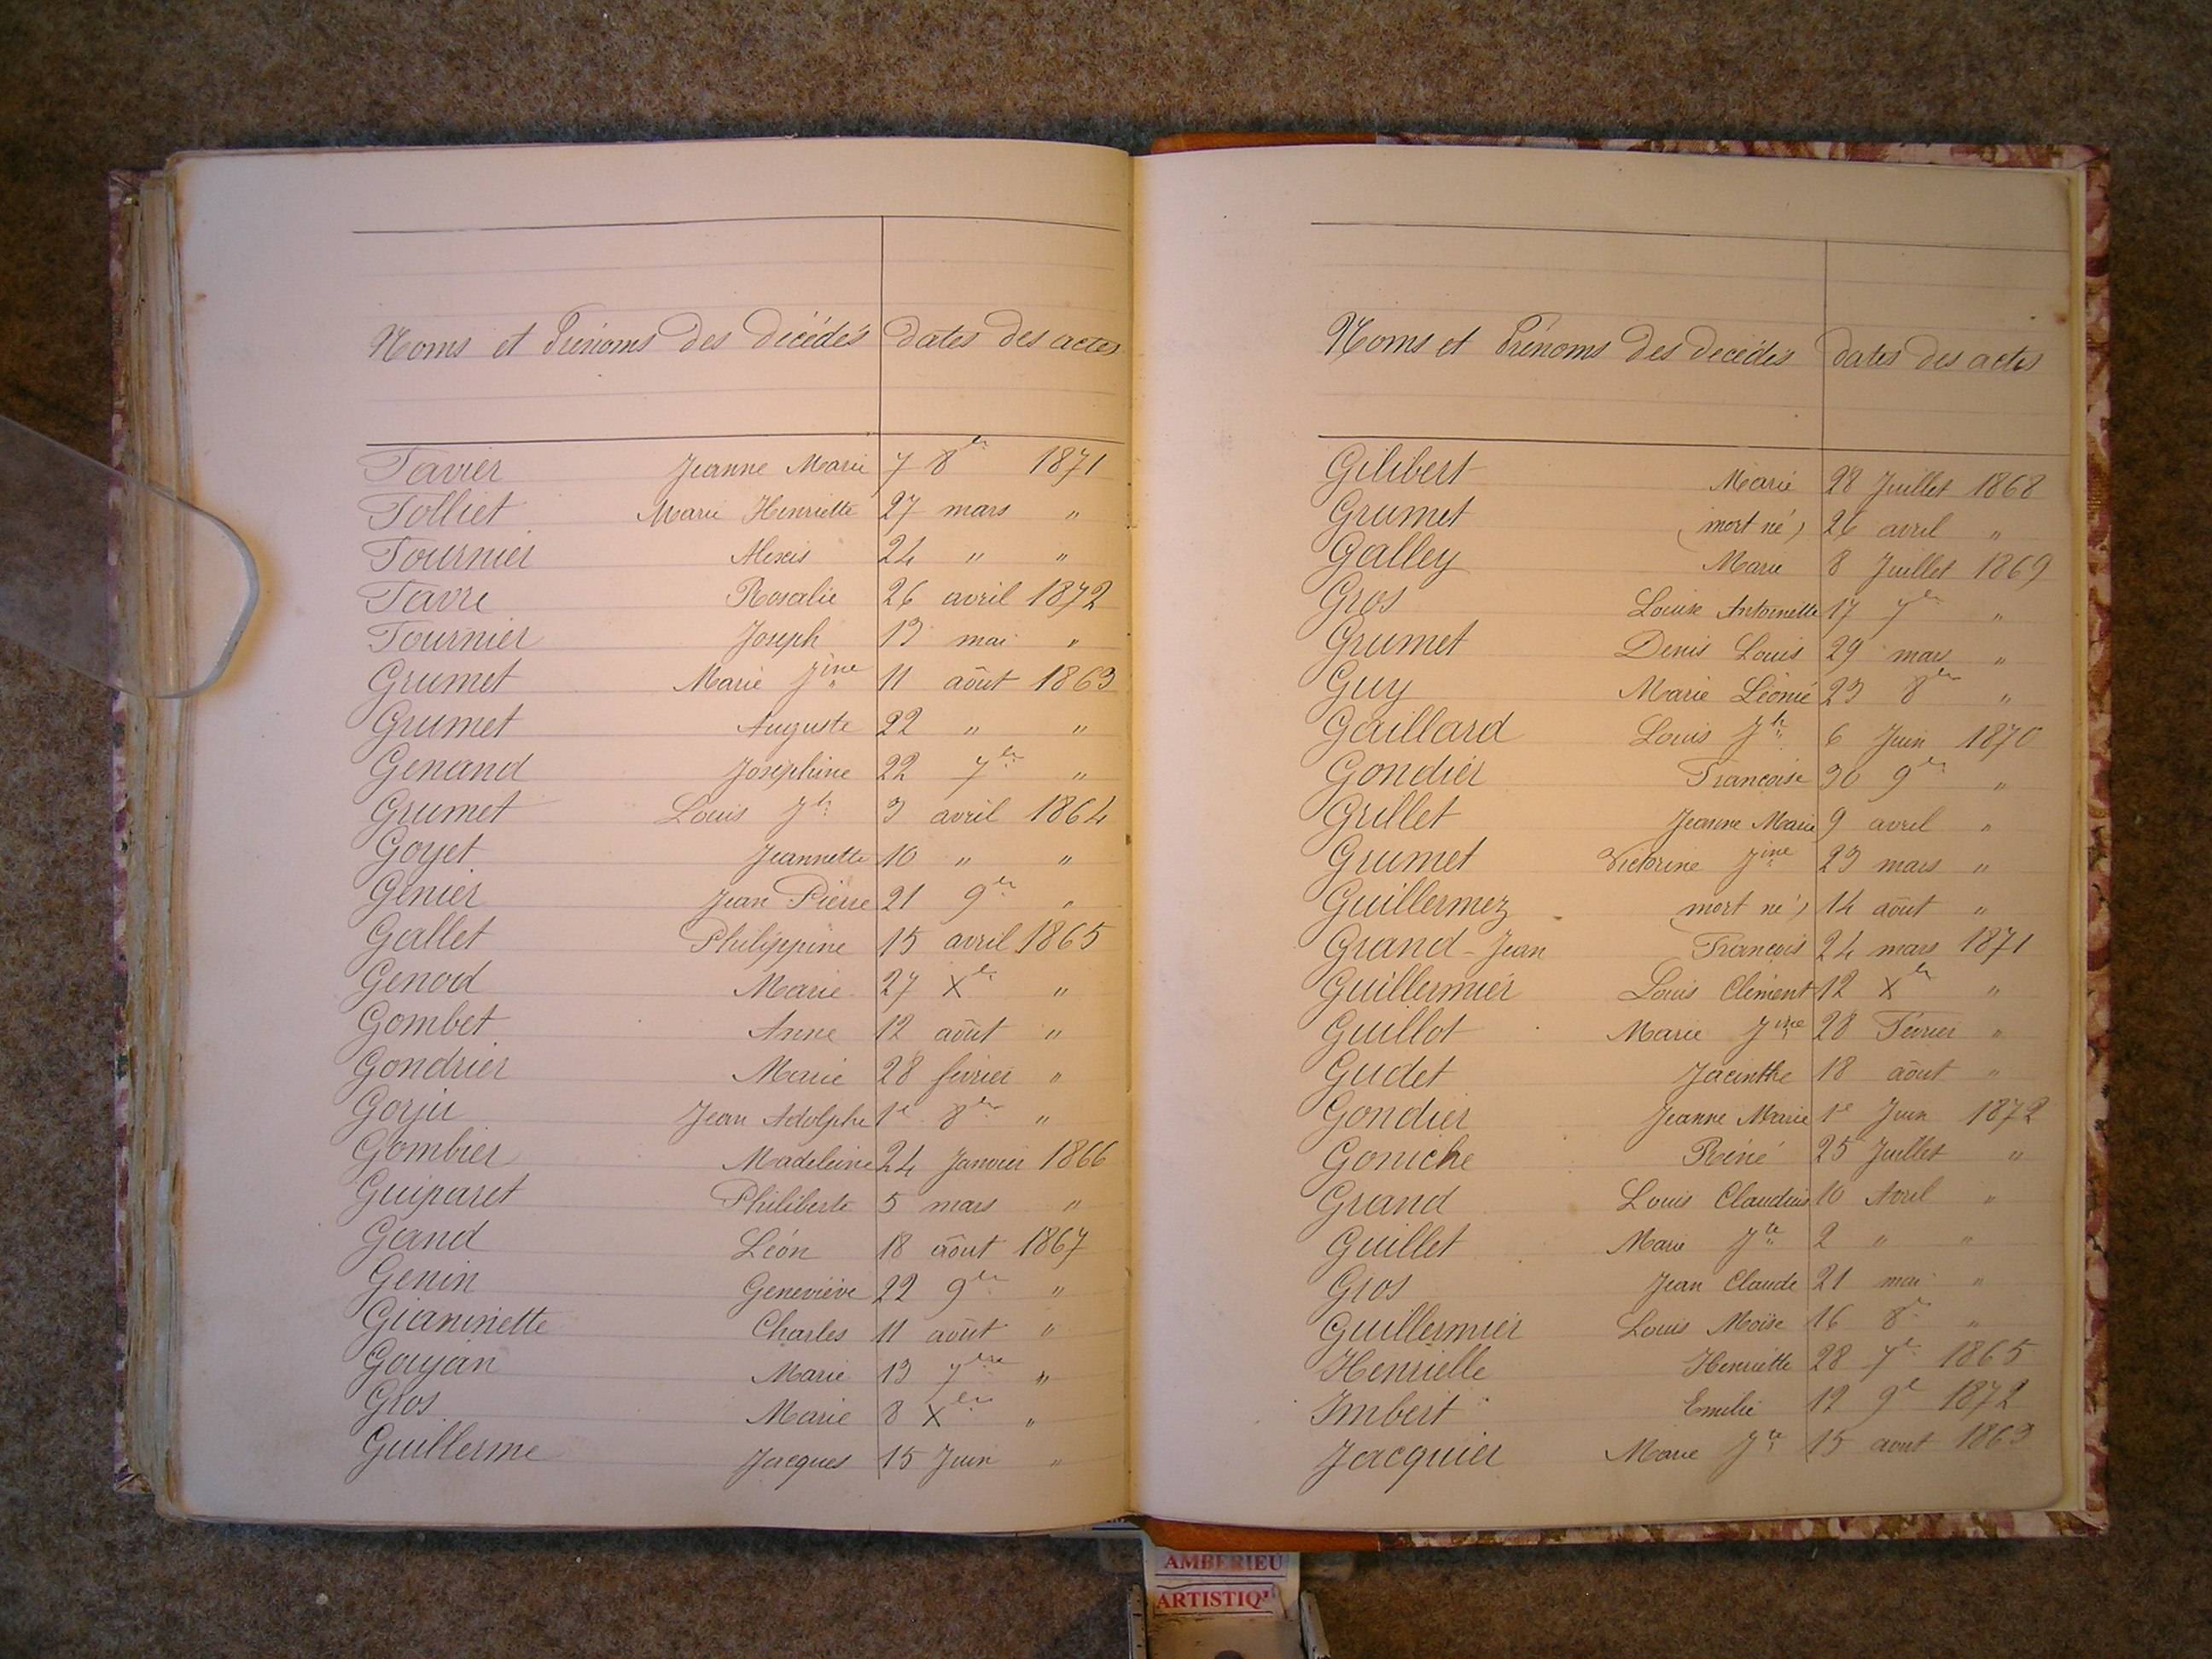 Noms et Prénoms des décédés Dates des actes
Favier Jeanne Marie 7 8bre 1871
Folliet Marie Henriette 27 mars "
Fournier Alexis 24 " "
Favre Rosalie 26 avril 1872
Fournier Joseph 13 mai "
Grumet Marie Jine 11 août 1863
Grumet Auguste 22 " "
Genand Joséphine 22 7bre "
Grumet Louis Jh 3 avril 1864
Goyet Jeannette 10 " "
Génier Jean Pierre 21 9bre "
Gallet Philippine 15 avril 1865
Genod Marie 27 Xbre "
Gombet Anne 12 août "
Gondrier Marie 28 février "
Gorju Jean Adolphe 1e 8bre "
Gombier Madeleine 24 Janvier 1866
Guiparet Philiberte 5 mars "
Gand Léon 18 août 1867
Genin Geneviève 22 9bre "
Gianinette Charles 11 août "
Goujon Marie 13 7bre "
Gros Marie 8 Xbre "
Guillerme Jacques 15 Juin "
Noms et Prénoms des décédés dates des actes
Gilibert Marie 28 Juillet 1868
Grumet (mort né) 26 avril "
Galley Marie 8 Juillet 1869
Gros Louise Antoinette 17 7bre "
Grumet Denis Louis 29 mars "
Guy Marie Léonie 23 8bre "
Gaillard Louis Jh 6 Juin 1870
Gondier Françoise 30 9bre "
Grillet Jeanne Marie 9 avril "
Grumet Victorine Jine 23 mars "
Guillermez (mort né) 14 août "
Grand-Jean François 24 mars 1871
Guillermier Louis Clément 12 Xbre "
Guillot Marie Jine 28 Février "
Gudet Jacinthe 18 août "
Gondier Jeanne Marie 1e Juin 1872
Goniche Réné 25 Juillet "
Grand Louis Claudius 10 Avril "
Guillet Marie Jte 2 " "
Gros Jean Claude 21 mai "
Guillermier Louis Moïse 16 8e "
Henrielle Henriette 28 7e 1865
Imbert Emélie 12 9e 1872
Jacquier Marie Jte 15 aout 1863
AMBERIEU
ARTISTIQ